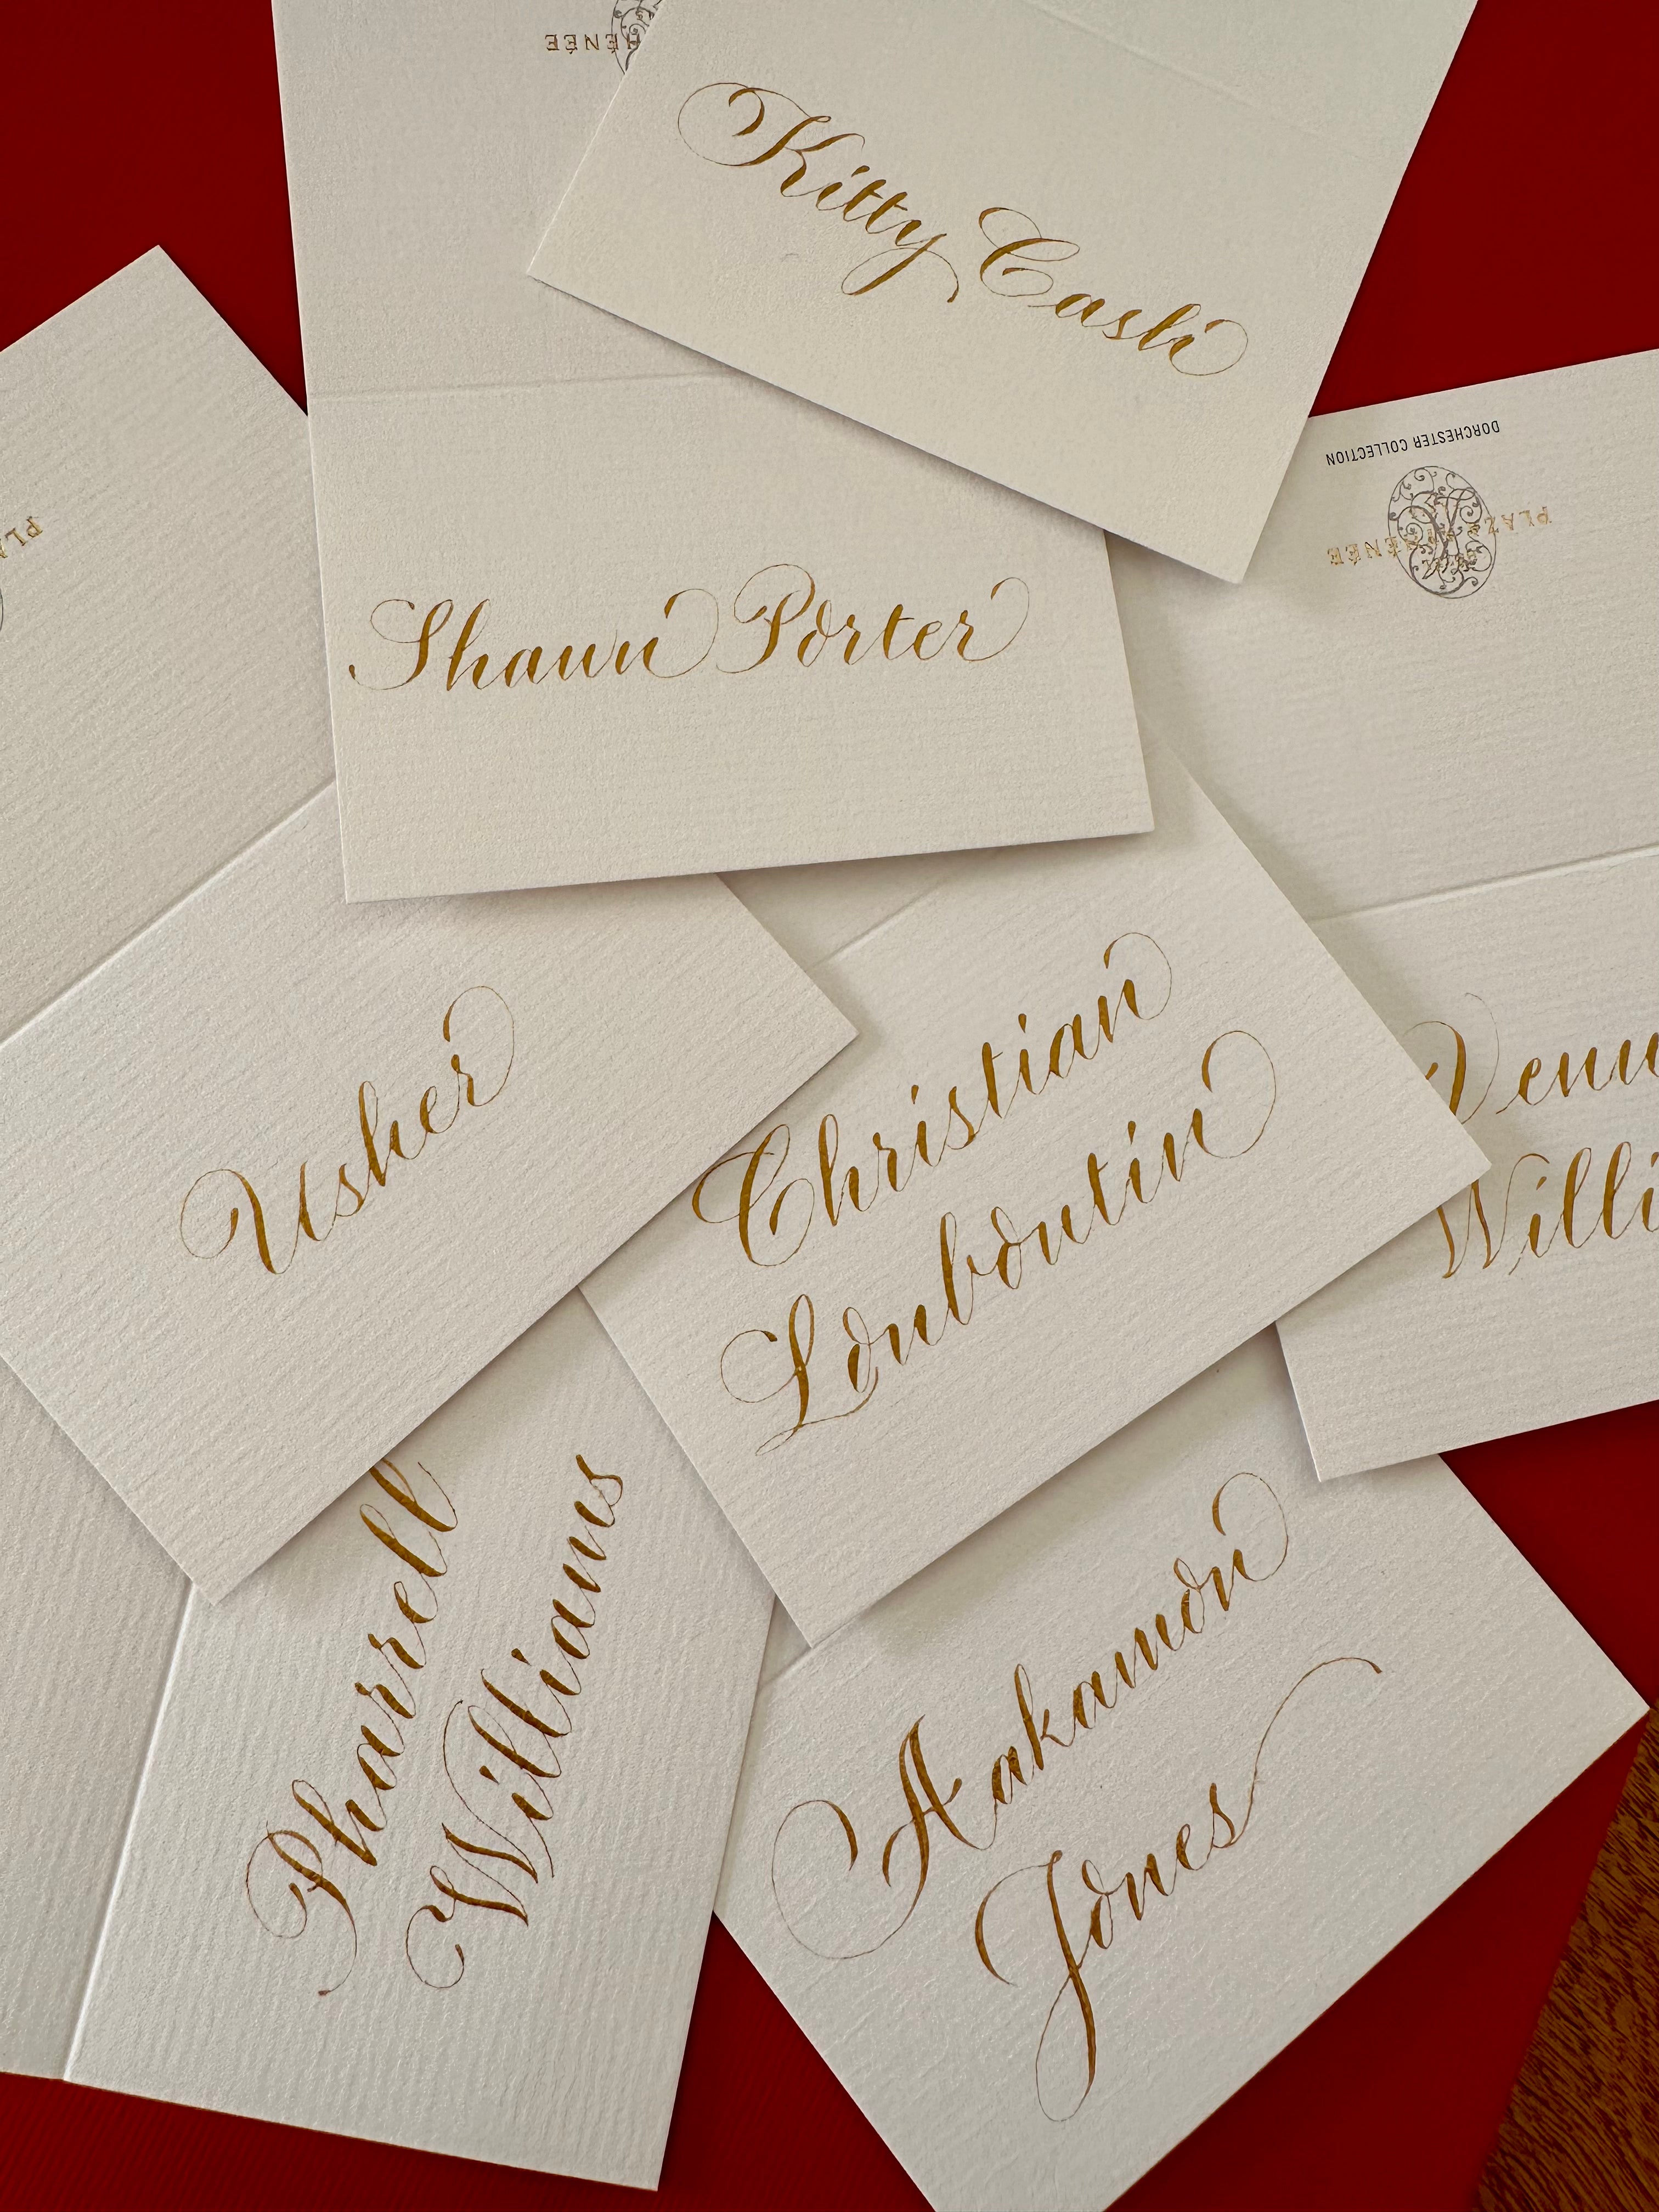 HÉNÉE
Kitty Cash
DORCHESTER COLLECTION
PLAZA ATHÉNÉE
PLA
Shawn Porter
Usher
Christian
Louboutin
Venu
Willi
Pharrell
Williams
Aakamon
Jones